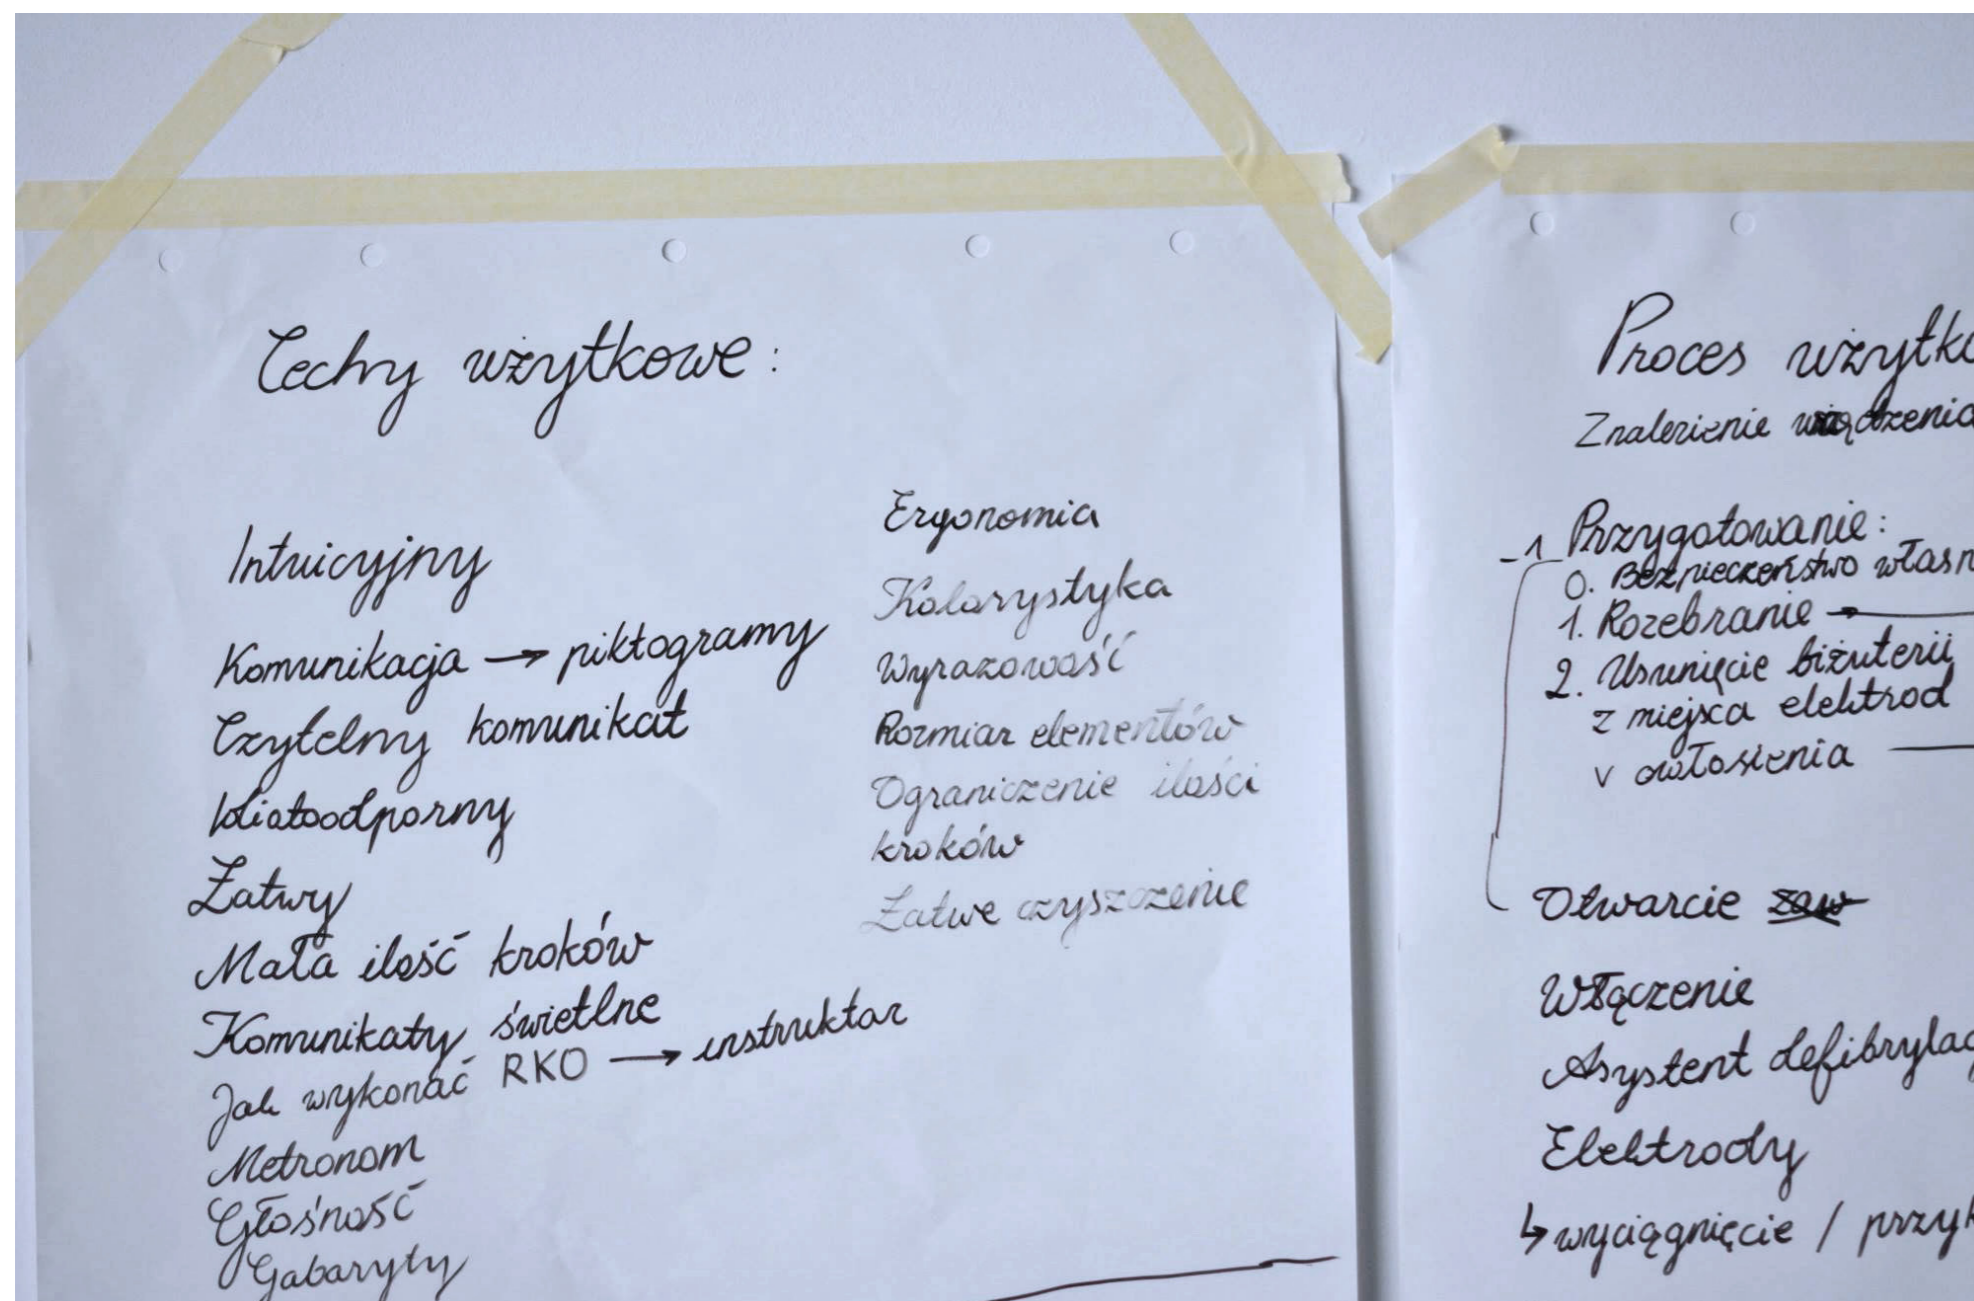 Cechy użytkowe:
Intuicyjny
Komunikacja → piktogramy
Czytelny komunikat
Idiotoodporny
Łatwy
Mała ilość kroków
Komunikaty świetlne
Jak wykonać RKO → instruktor
Metronom
Głośność
Gabaryty
Ergonomia
Kolorystyka
Wyrazowość
Rozmiar elementów
Ograniczenie ilości
kroków
Łatwe czyszczenie
Proces użytko
Znalezienie urządzenia
-1 Przygotowanie:
0. Bezpieczeństwo własn
1. Rozebranie →
2. Usunięcie biżuterii
z miejsca elektrod
v owłosienia
Otwarcie
Włączenie
Asystent defibrylac
Elektrody
↳ wyciągnięcie / przyk